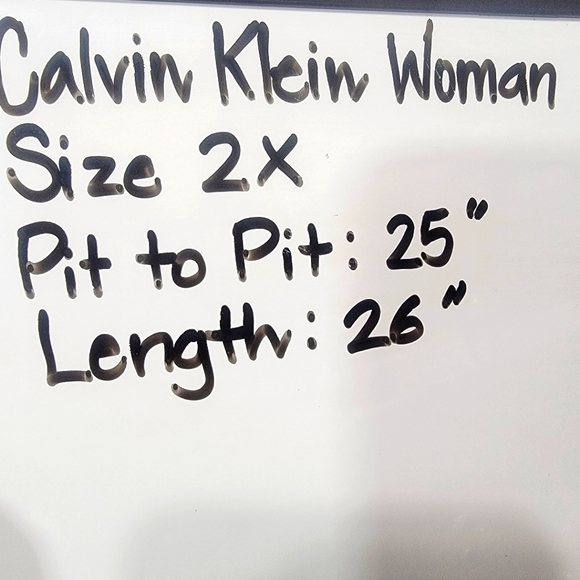 Calvin Klein Woman
Size 2X
Pit to Pit: 25"
Length: 26"